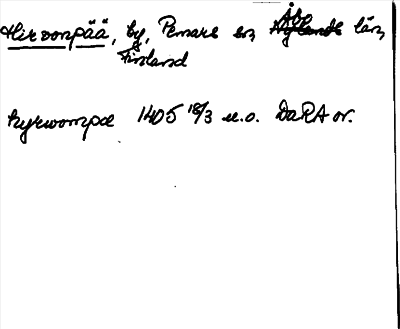 Hirvonpää, by, Pemars sn, Åbo län,
Finland
hyrwompæ 1405 18/3 u.o. DaRA or.